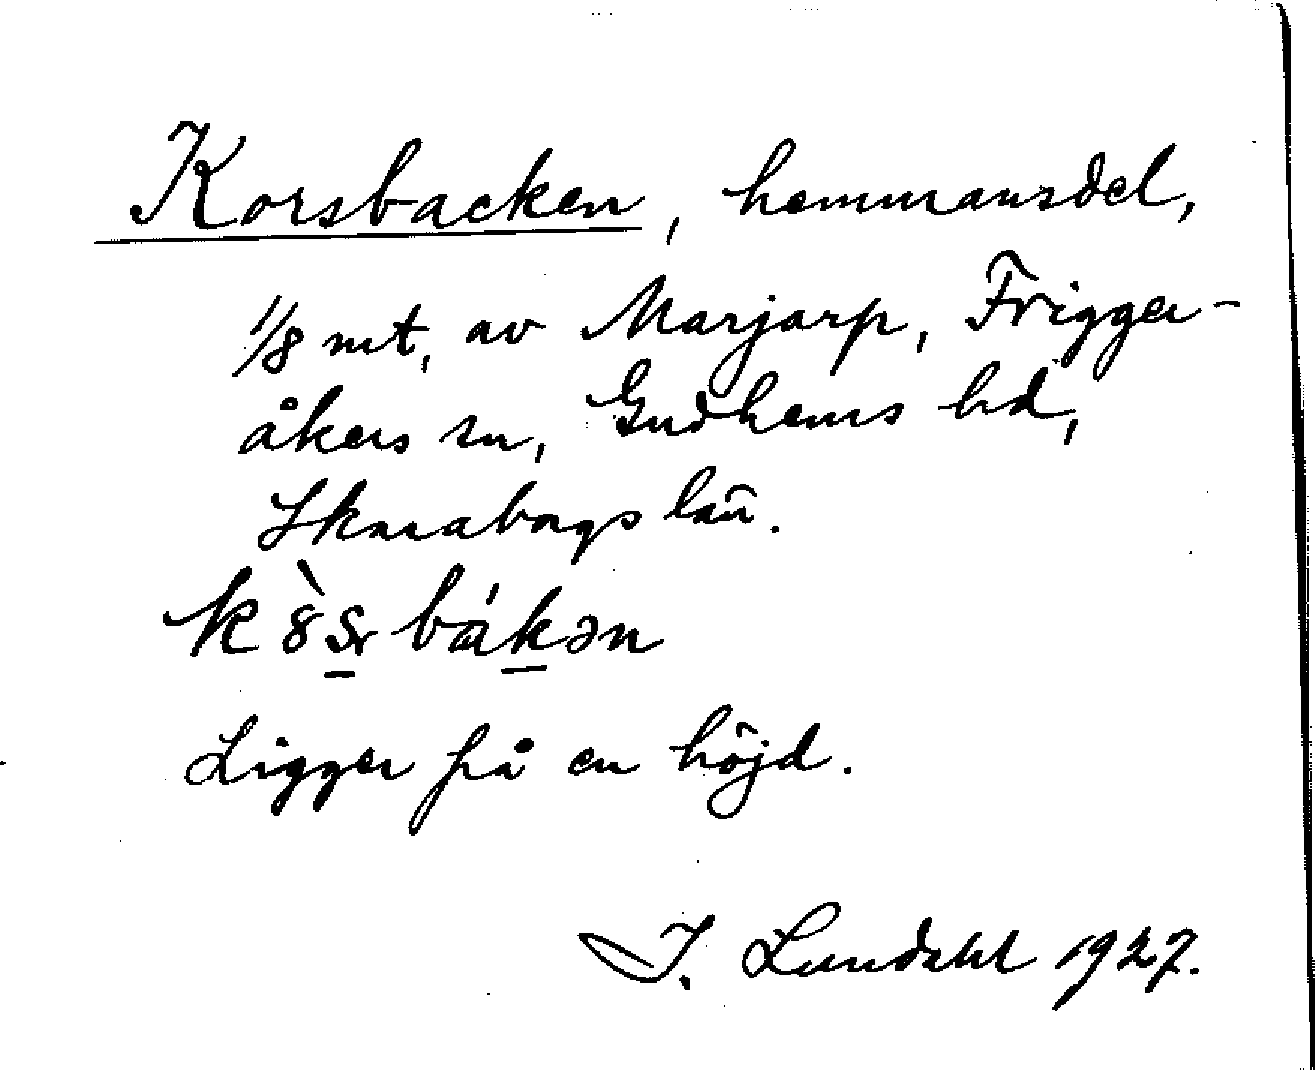 Korsbacken, hemmansdel,
1/8 mt, av Marjarp, Frigger-
åkers sn, Gudhems hd,
Skaraborgs län.
k 8̀s̠r bák̠ən
Ligger på en höjd.
I. Lundahl 1927.